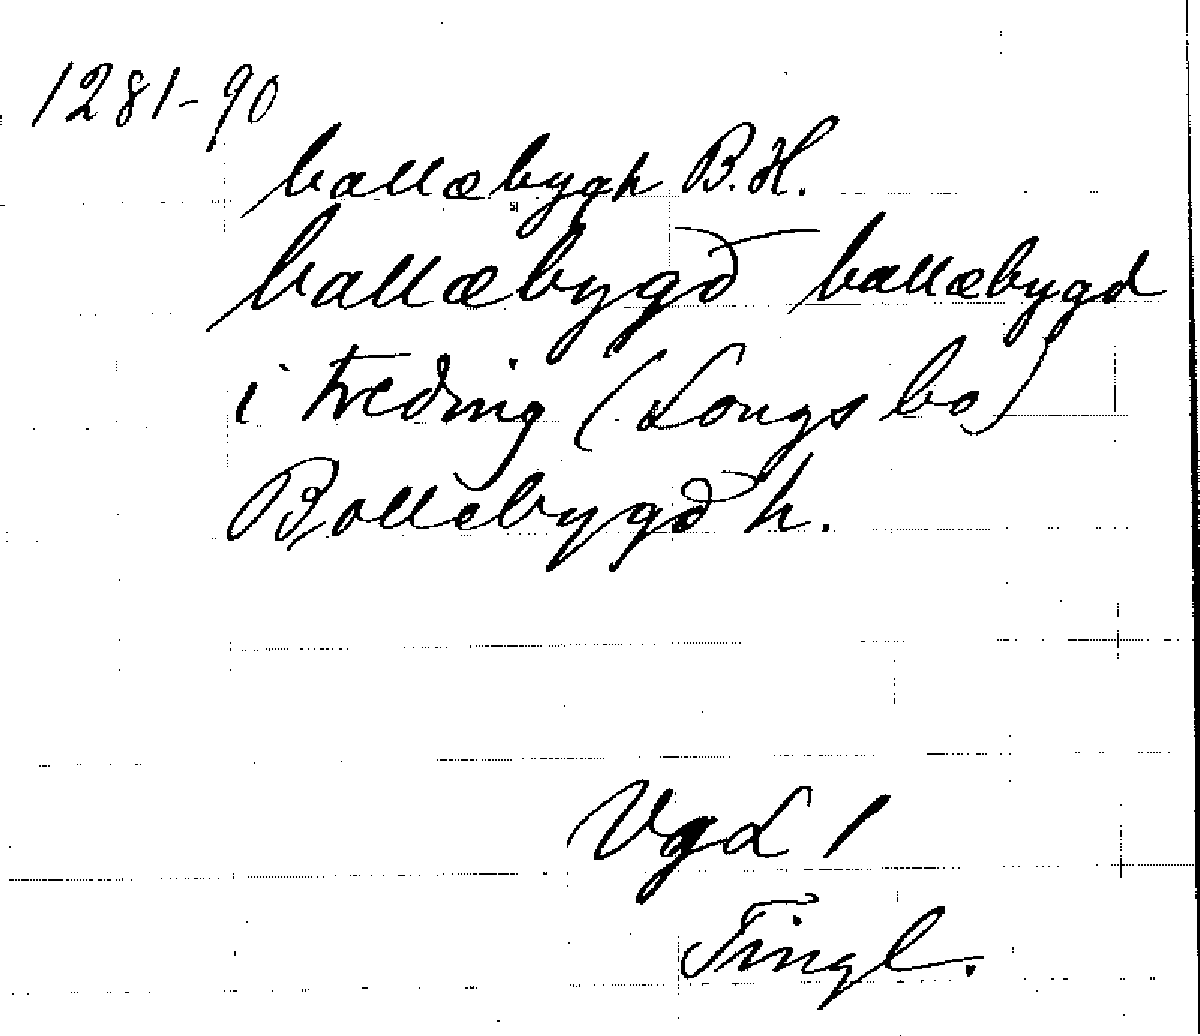 1281-90
ballæbygh B.H.
ballæbygð ballæbygd
i treðing (Longs bo)
Bollebygd h.
VgL 1
Tingl.